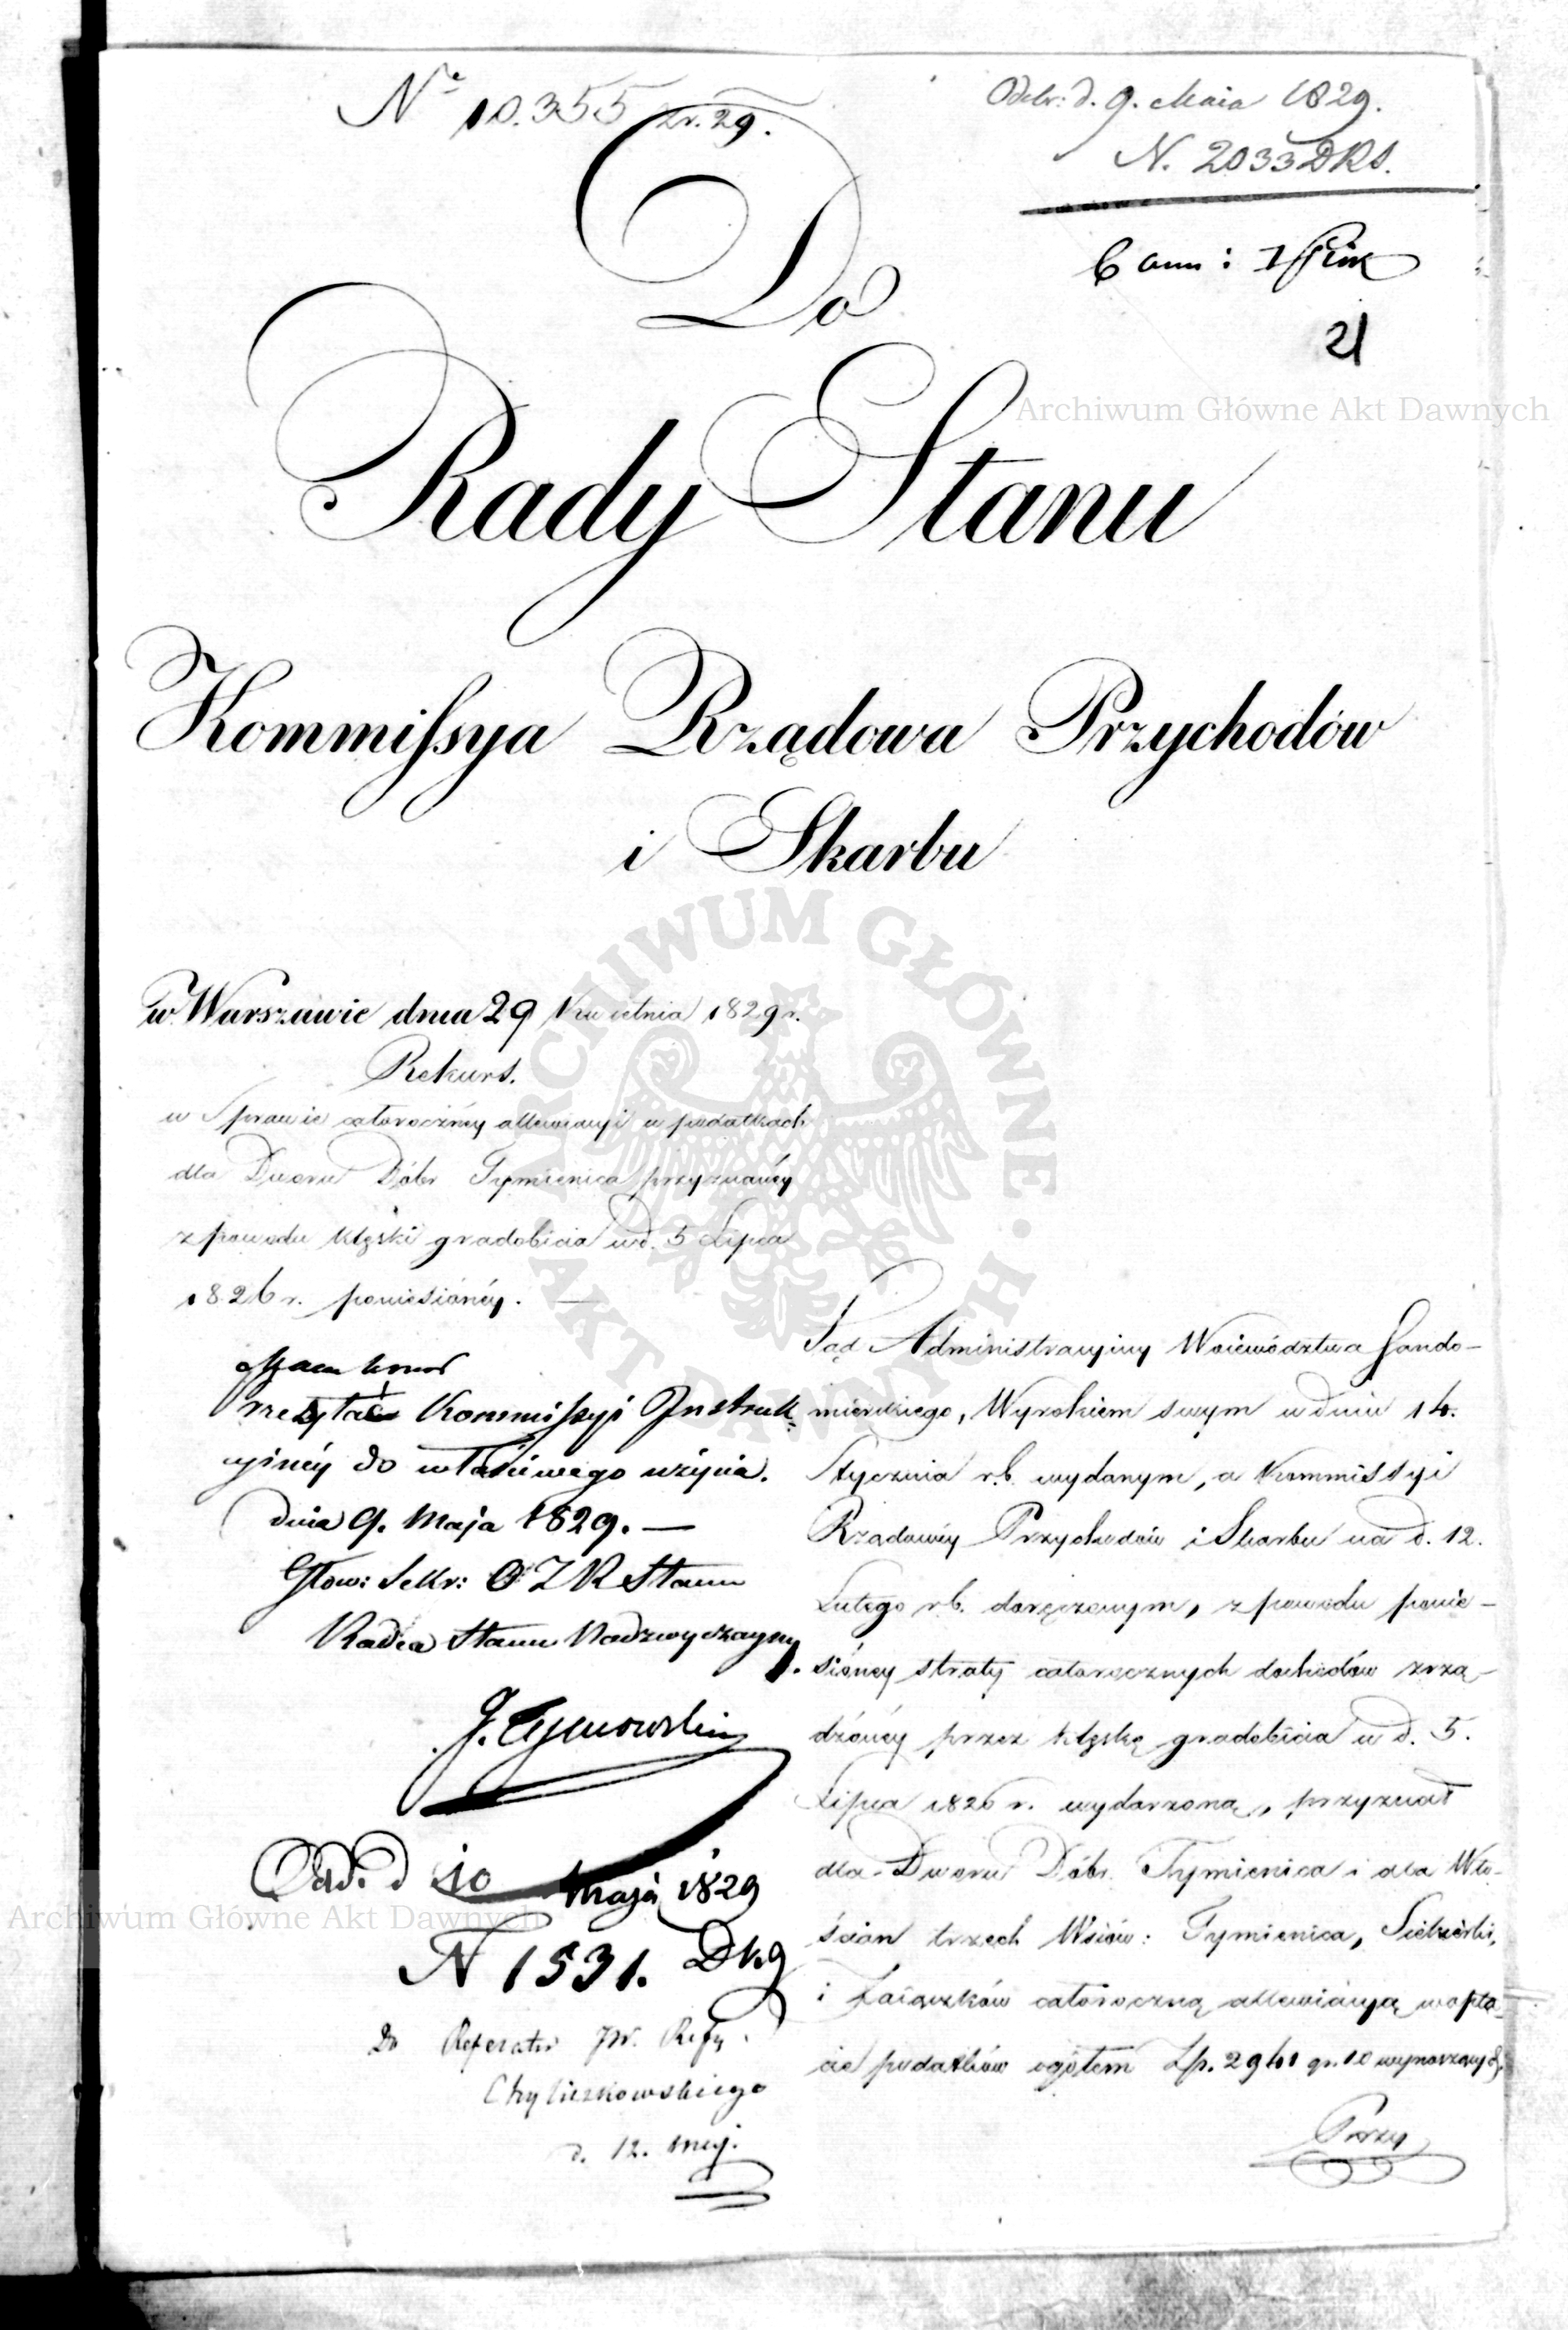 No 10.355 Zr. 29.
Odebr: d. 9. Maia 1829.
N. 2033 DRS.
6 ann:
21
Do
Rady Stanu
Kommissya Rządowa Przychodów
i Skarbu
w Warszawie dnia 29 Kwietnia 1829 r.
Rekurs.
w Sprawie całorocznéy allewiacyi w podatkach
dla Dworu Dóbr Tymienica przyznanéy
z powodu klęski gradobicia w d. 5 Lipca
1826 r. poniesionéy. —
Mam honor
przesłać Kommissyi Instruk-
cyinéy do właściwego użycia.
dnia 9. Maja 1829. —
Głow: Sekr: O Z R Stanu
Radca Stanu Nadzwyczayny.
J. Tymowski
Odd. d 10 Maja 1829
N 1531. DKg
Do Referatu JW. Refer.
Chyliczkowskiego
d. 12. maj.
Sąd Administracyiny Województwa Sando-
mierskiego, Wyrokiem swym w dniu 14.
Stycznia r.b. wydanym, a Kommissyi
Rządowéy Przychodów i Skarbu na d. 12.
Lutego r.b. doręczonym, z powodu ponie-
sionéy straty całorocznych dochodów zrzą-
dzonéy przez klęskę gradobicia w d. 5.
Lipca 1826 r. wydarzoną, przyznał
dla Dworu Dóbr Tymienica i dla Wło-
ścian trzech Wsiów: Tymienica,
i Zaiączków całoroczną allewiacyą w opła-
cie podatków ogółem Zł. 2941 gr. 10 wynoszących,
Przy
Archiwum Główne Akt Dawnych
ARCHIWUM GŁÓWNE AKT DAWNYCH
Archiwum Główne Akt Dawnych